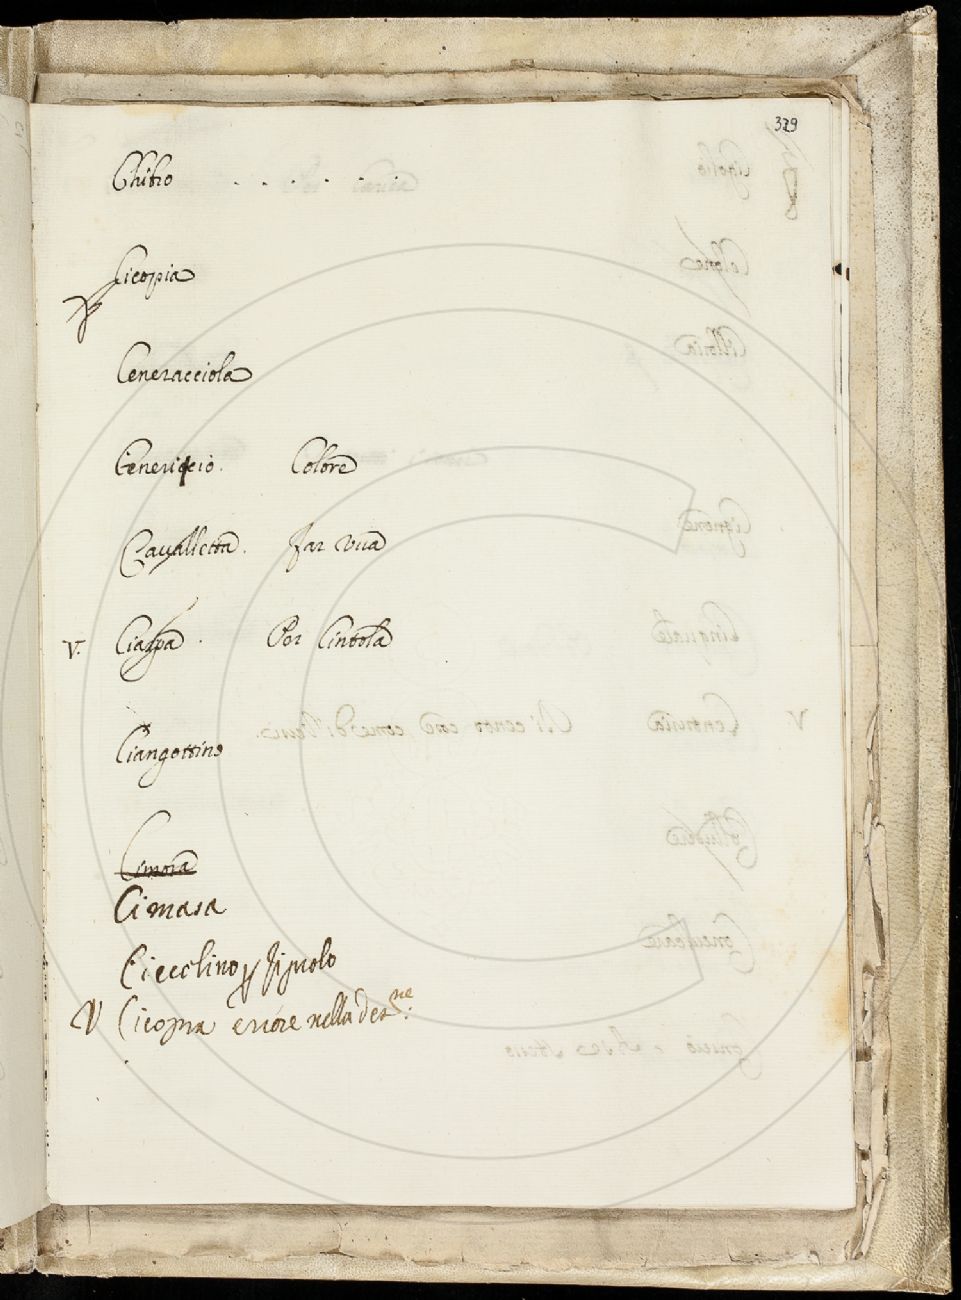 329
Chibo . . . . . .
Cicopia
Ceneracciola
Cenericcio. Colore
Cavalletta. Far vua
V. Ciarpa. Per Cintola
Ciangottino
Cimora
Cimasa
Ciecolino p Fignolo
V Cicopra errore nella des.ne: